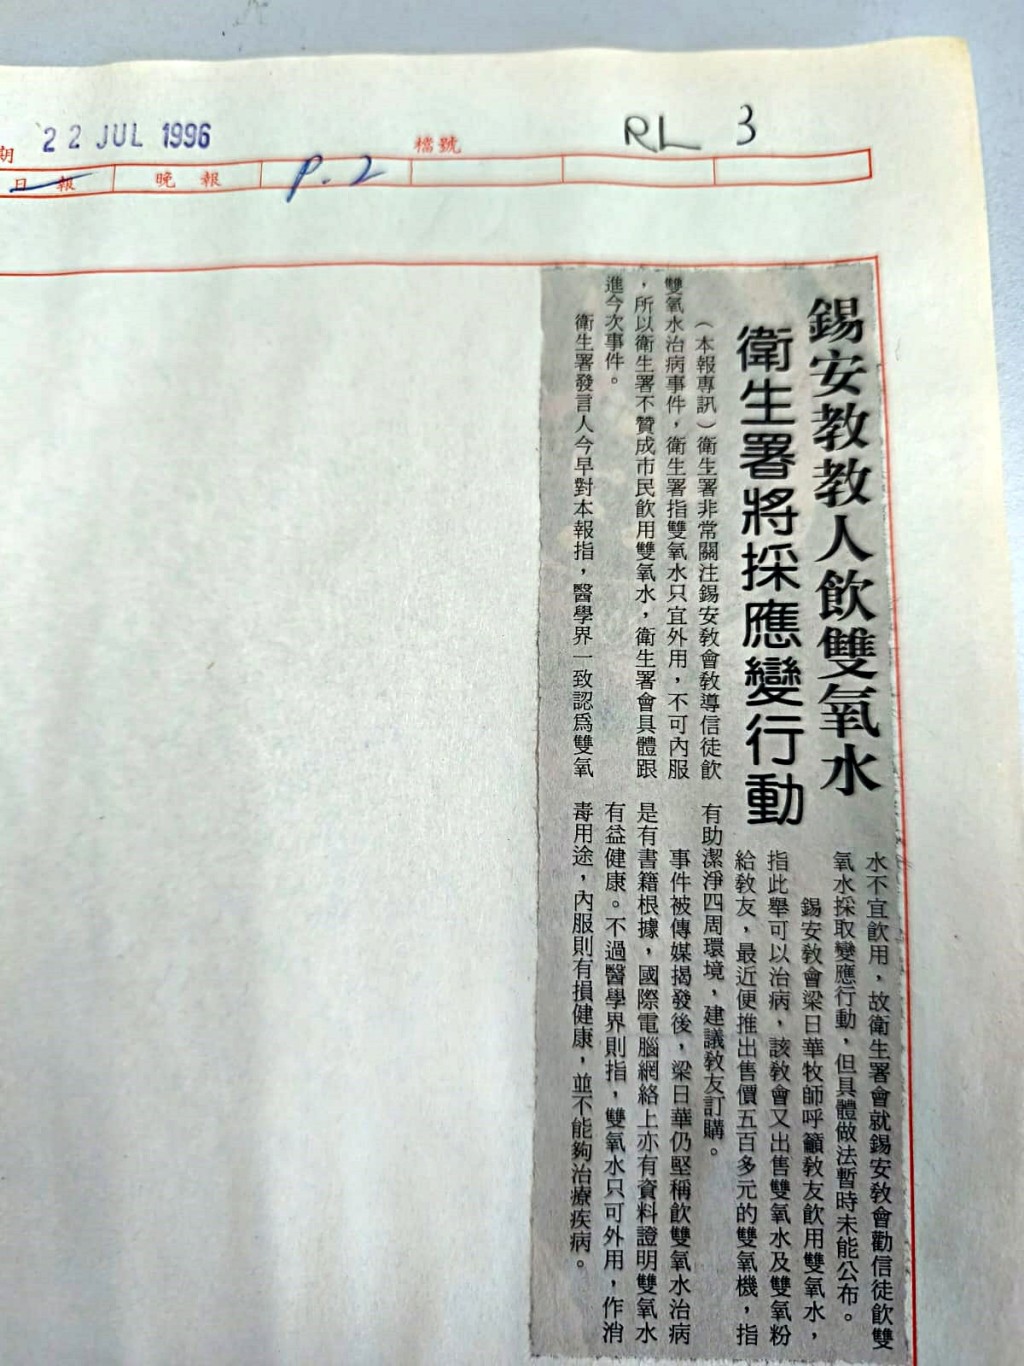 期
22 JUL 1996
檔號
RL 3
日報
晚報
P. 2
錫安教教人飲雙氧水
衛生署將採應變行動
（本報專訊）衛生署非常關注錫安教會教導信徒飲
雙氧水治病事件，衛生署指雙氧水只宜外用，不可內服
，所以衛生署不贊成市民飲用雙氧水，衛生署會具體跟
進今次事件。
衛生署發言人今早對本報指，醫學界一致認爲雙氧
水不宜飲用，故衛生署會就錫安教會勸信徒飲雙
氧水採取變應行動，但具體做法暫時未能公布。
錫安教會梁日華牧師呼籲教友飲用雙氧水，
指此舉可以治病，該教會又出售雙氧水及雙氧粉
給教友，最近便推出售價五百多元的雙氧機，指
有助潔淨四周環境，建議教友訂購。
事件被傳媒揭發後，梁日華仍堅稱飲雙氧水治病
是有書籍根據，國際電腦網絡上亦有資料證明雙氧水
有益健康。不過醫學界則指，雙氧水只可外用，作消
毒用途，內服則有損健康，並不能夠治療疾病。